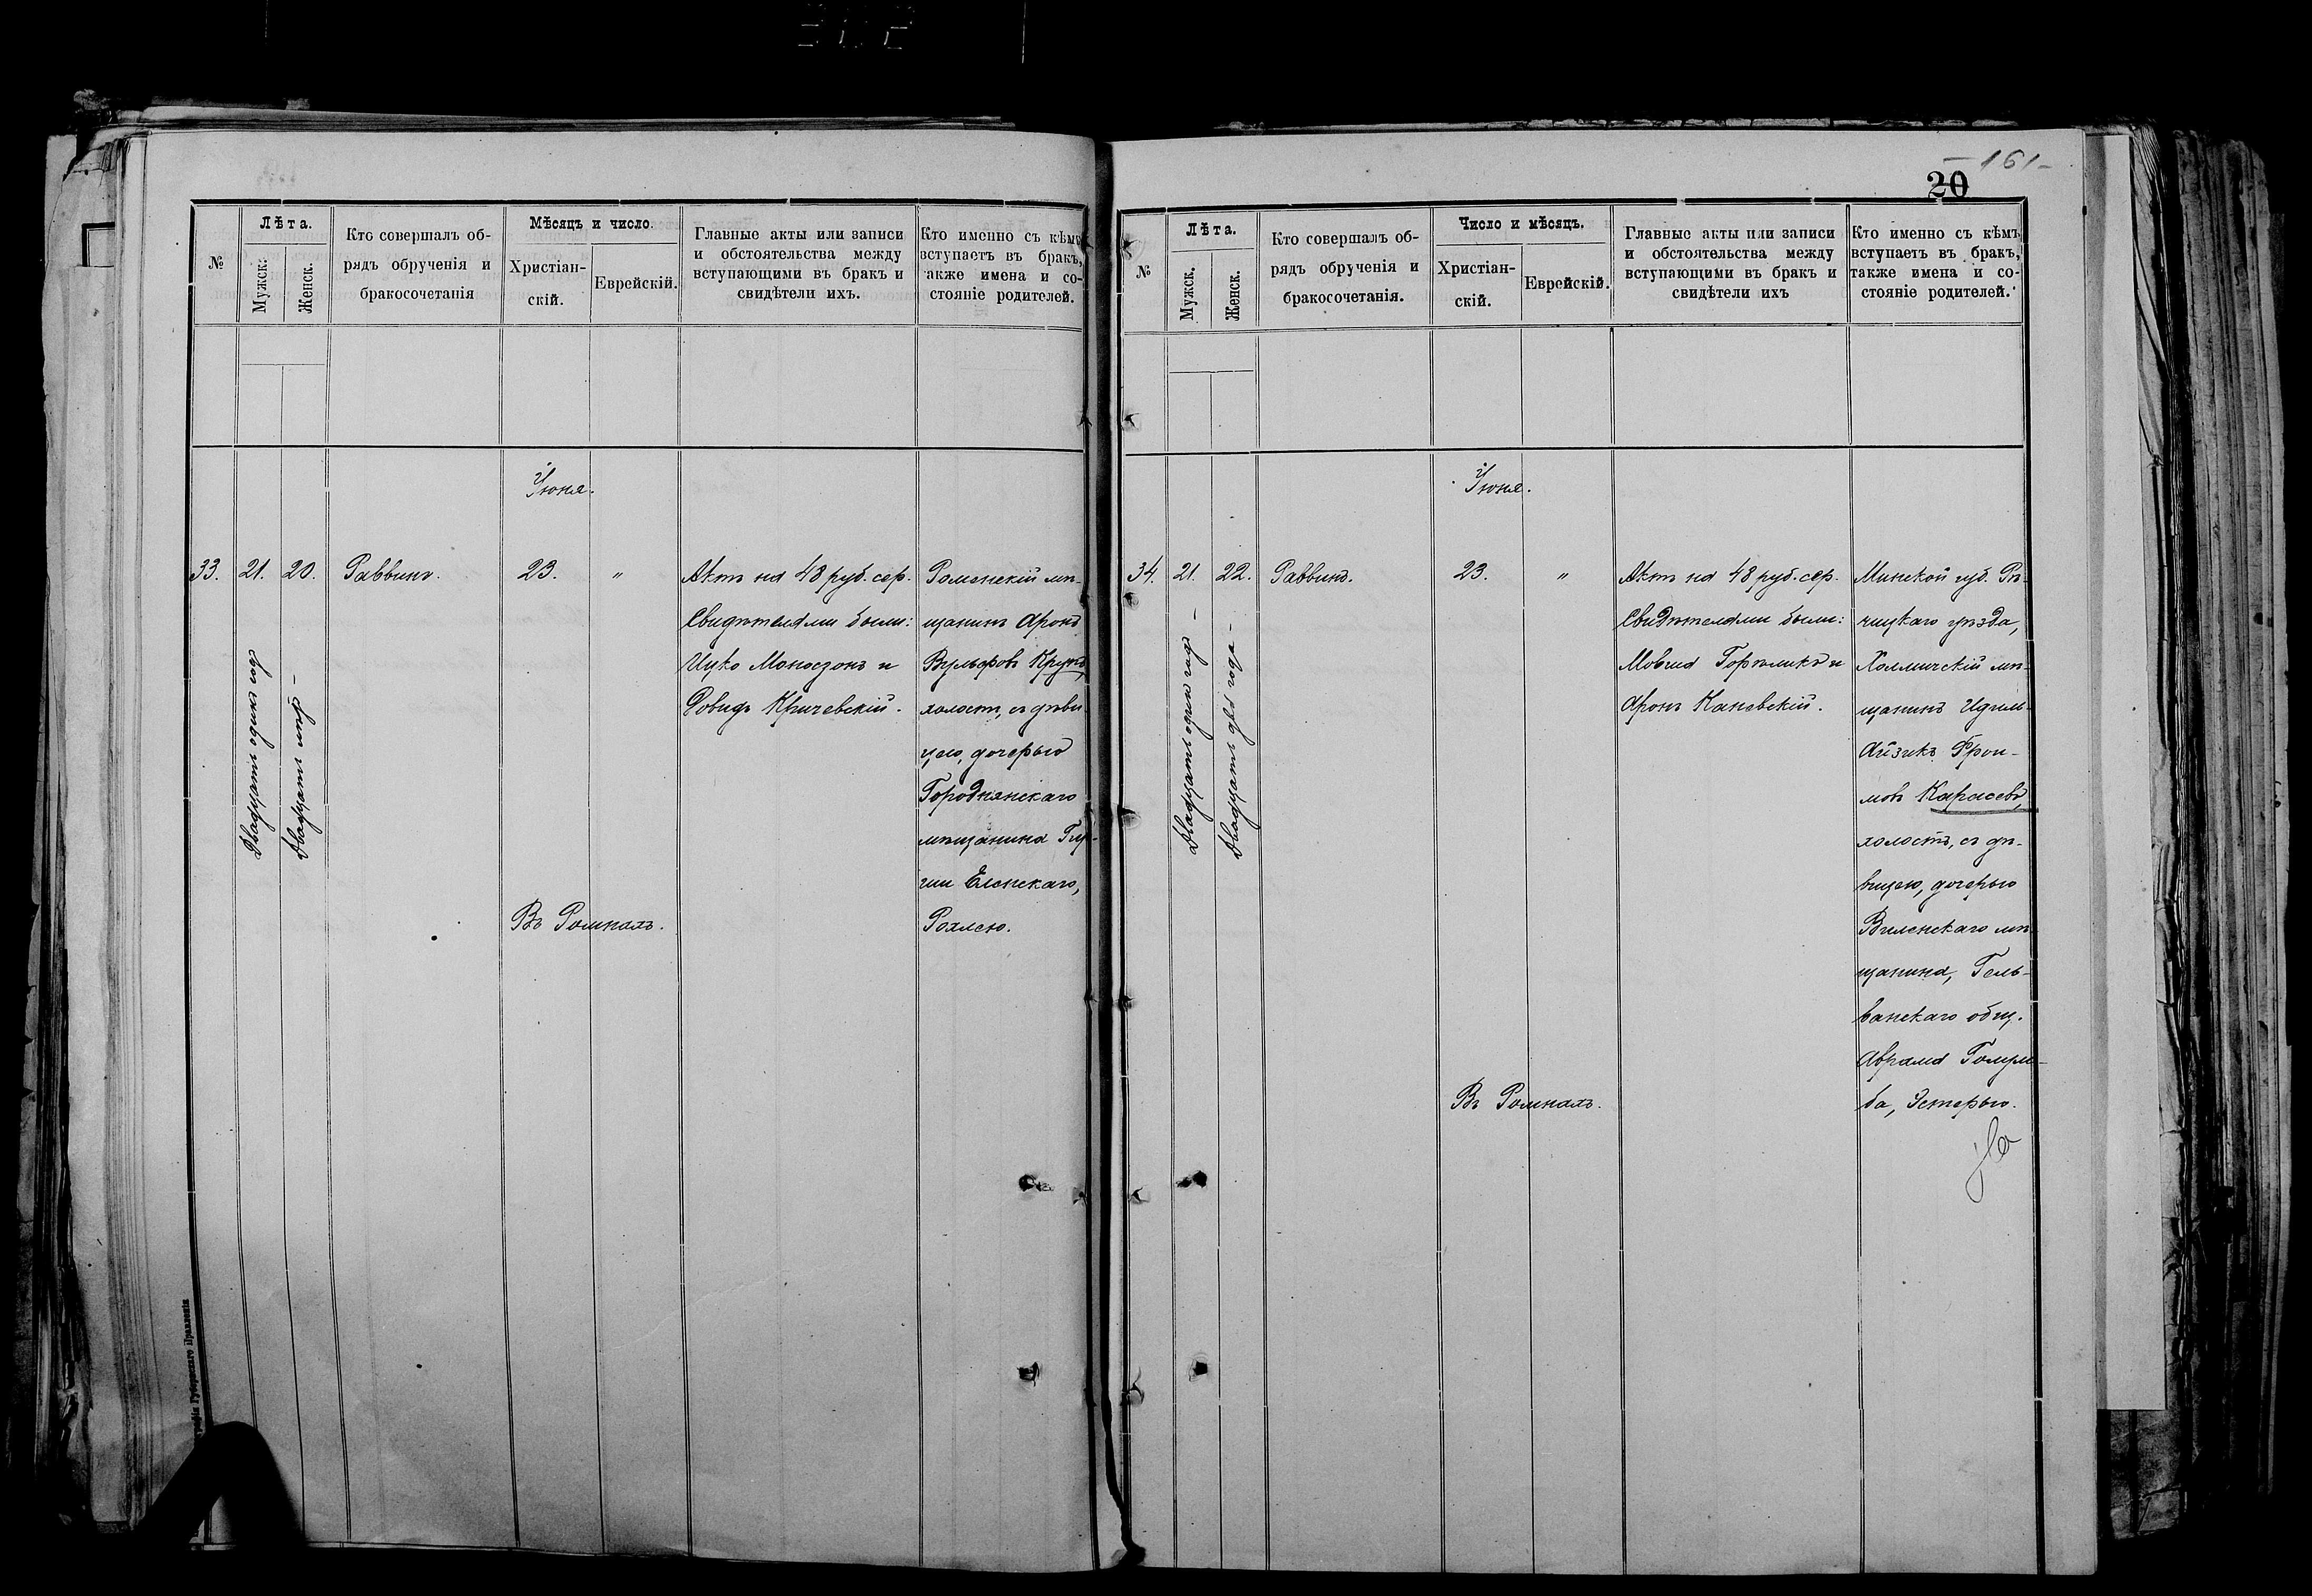 №
Лѣта.
Мужск.
Женск.
Кто совершалъ об-
рядъ обрученія и
бракосочетанія
Мѣсяцъ и число.
Христіан-
скій.
Еврейскій.
Главные акты или записи
и обстоятельства между
вступающими въ бракъ и
свидѣтели ихъ.
Кто именно съ кѣмъ
вступаетъ въ бракъ,
также имена и со-
стояніе родителей.
Іюня.
33.
21.
Двадцать одинъ годъ
20.
Двадцать лѣтъ –
Раввинъ.
23.
"
Въ Ромнахъ.
Актъ на 48 руб. сер.
Свидѣтелями были:
Ицко Моносзонъ и
Довидъ Кричевскій.
Роменскій мѣ-
щанинъ Аронъ
Вульфовъ Крупъ,
холостъ, съ дѣви-
цею, дочерью
Городнянскаго
мѣщанина
Еленскаго,
Рохлею.
Губернскаго Правленія
– 161 –
20
№
Лѣта.
Мужск.
Женск.
Кто совершалъ об-
рядъ обрученія и
бракосочетанія.
Число и мѣсяцъ.
Христіан-
скій.
Еврейскій.
Главные акты или записи
и обстоятельства между
вступающими въ бракъ и
свидѣтели ихъ
Кто именно съ кѣмъ
вступаетъ въ бракъ,
также имена и со-
стояніе родителей.
Іюня.
34.
21.
Двадцать одинъ годъ –
22.
Двадцать два года –
Раввинъ.
23.
"
Въ Ромнахъ.
Актъ на 48 руб. сер.
Свидѣтелями были:
Мовша Горѣликъ и
Аронъ Каневскій.
Минской губ. Рѣ-
чицкаго уѣзда,
Холмичскій мѣ-
щанинъ Идель-
Айзикъ Фрои-
мовъ Карасевъ,
холостъ, съ дѣ-
вицею, дочерью
Виленскаго мѣ-
щанина, Гель-
ванскаго общ.
Абрама
ба, Эстерью.